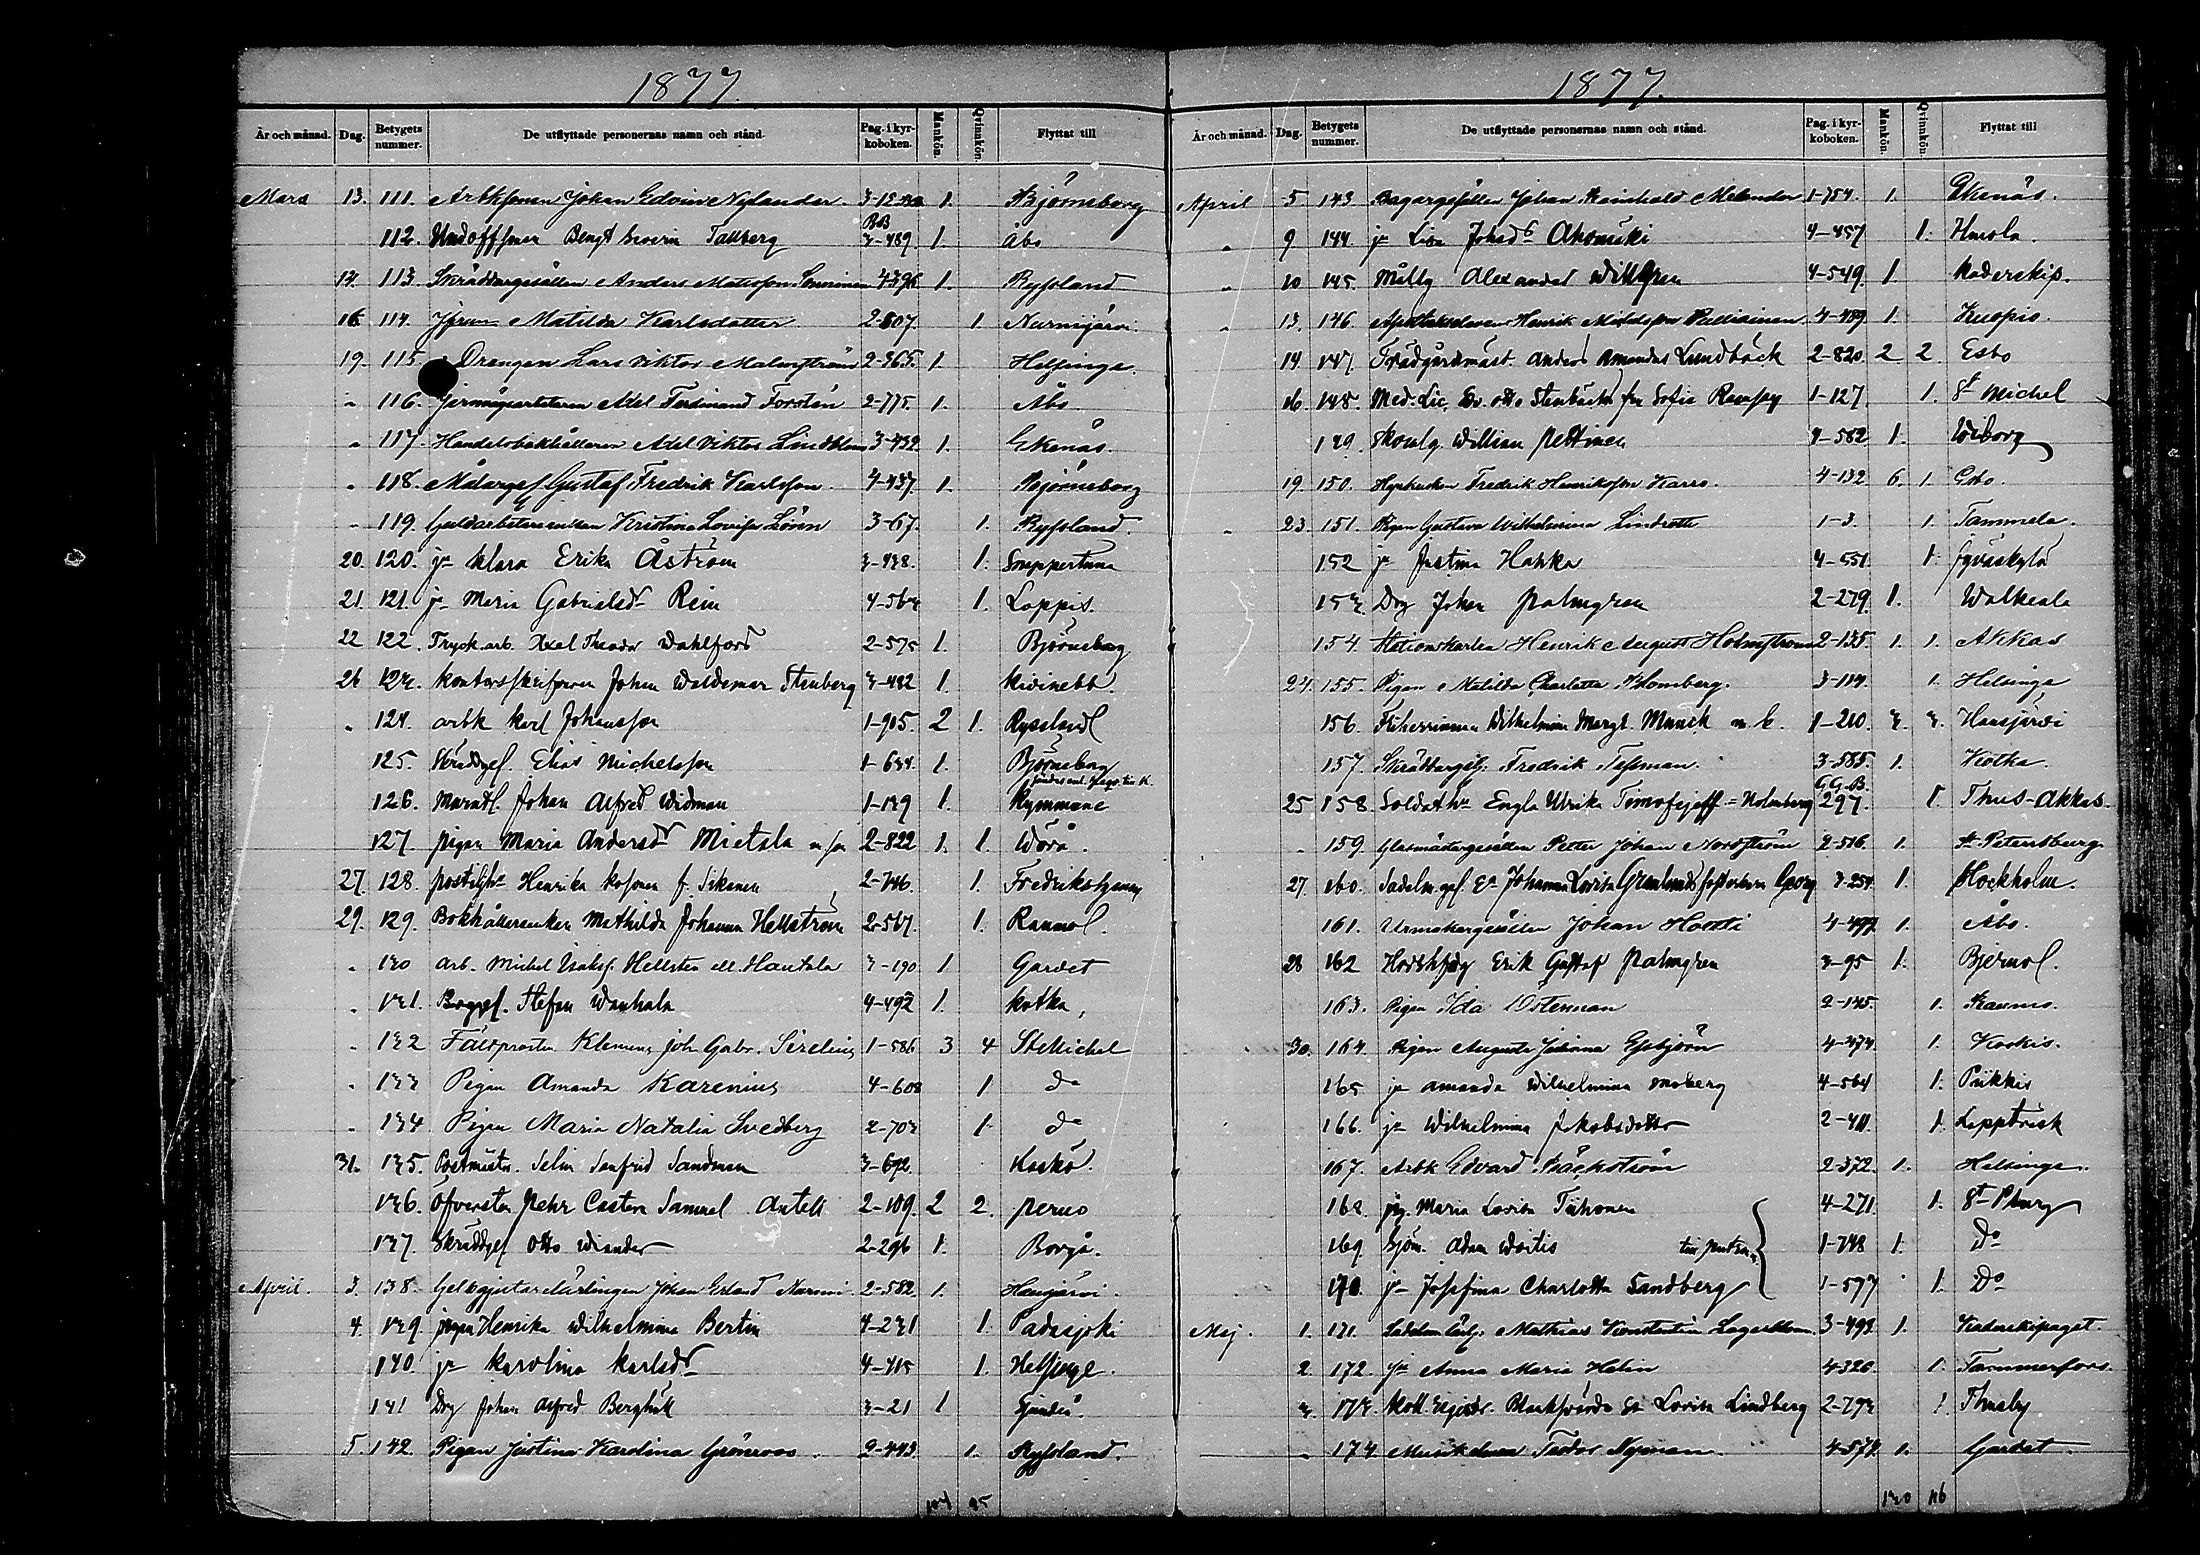 1877.
År och månad. Dag. Betygets nummer. De utflyttade personernas namn och stånd. Pag. i kyrkoboken. Mankön. Qvinnkön. Flyttat till
Mars 13. 111. Arbksonen Johan Edvin Nylander. 1. Björneborg
112. Bengt Severin Tallberg 3-489. 1. Åbo
14. 113. Skräddaregesällen Anders Matsson 1. Ryssland
16. 114. Jfrun Matilda Karlsdotter 2-807. 1. Nurmijärvi
19. 115. Drengen Lars Viktor Malmström 2-365. 1. Helsinge.
" 116. Axel Ferdinand Forstén 2-775. 1. Åbo
" 117. Handelsbokhållaren Axel Viktor Lindblom 3-432. 1. Ekenäs.
" 118. Målareges Gustaf Fredrik Karlsson. 4-437. 1. Björneborg
" 119. Guldarbetareenkan Kristina Lovisa Lönn 3-67. 1. Ryssland.
20. 120. ja Klara Erika Åström 3-438. 1.
21. 121. ja Maria Gabrielsd. Rein 4-563 1. Loppis.
22 122. Tryck.arb. Axel Theodor Dahlfors 2-575 1. Björneborg
26 123. Kontorsskrifvaren Johan Waldemar Stenberg 3-482 1. Kivinebb.
" 124. arbk Karl Johansson 1-905. 2 1. Ryssland
125. Skräddges. Elias Michelsson 1-634. 1. Björneborg
126. Johan Alfred Widman 1-139 1. Kymmene
127. pigan Maria Andersdr Mietala m son 2-822 1. 1. Wörå.
27. 128. Henrika f. Sikanen 2-746. 1. Fredrikshamn
29. 129. Bokhållareenkan Mathilda Johanna Hellström 2-567. 1. Raumo l.
" 130 arb. Michel Isaks. Hellsten ell. Hautala 3-190 1. Gardet
" 131. Stefan Wanhala 4-492 1. Kotka,
" 132 Fältprosten Klemens Joh. Gabr. Sirelius 1-586 3 4 St Michel
" 133 Pigan Amanda Karenius 4-608 1 do
" 134 Pigan Maria Natalia Svedberg 2-703 1. do
31. 135. Postmästr. Selim Sanfrid Sandman 3-692. Kaskö.
136. Öfversten Pehr Samuel Antell 2-109. 2 2. Perno
137. Skräddges Otto Wiander 2-296 1. Borgå.
April. 3. 138. Gelbgjutarelärlingen Johan Erland Nurmi. 2-582. 1. Hausjärvi.
4. 139. pigan Henrika Wilhelmina Bertin 4-231 1. Padasjoki
140. ja Karolina Karlsdr 4-415 1. Helsinge.
141 Drg Johan Alfred 3-21 1 Sjundeå.
5. 142. Pigan Justina Karolina Grönroos. 2-443. 1. Ryssland.
104 95
1877.
År och månad. Dag. Betygets nummer. De utflyttade personernas namn och stånd. Pag. i kyrkoboken. Mankön. Qvinnkön. Flyttat till
April 5 143. Bagaregesällen Johan Reinhold Melander 1-754. 1. Ekenäs.
" 9 144. ja Lisa Johsdr 4-457 1.
" 10 145. Alexander 4-549. 1.
" 13. 146. Henrik 4-489 1. Kuopio.
14 147. Trädgårdsmäst. Anders Amandus Lundbäck 2-820. 2 2. Esbo
16. 148. Med. Lic. Dr. Otto Stenbäcks fru Sofie Ramsay 1-127 1. St Michel
149. William Pettinen 4-582 1. Wiborg
19. 150. Fredrik Henriksson Karro. 4-132 6. 1. Esbo.
" 23. 151. Pigan Gustava Wilhelmina 1-3. 1. Tammela.
152 ja Justina Hakka 4-551 1. Jyväskylä
153. Drg Johan Palmgren 2-279. 1. Walkeala
154. Stationskarlen Henrik August Holmström 2-135. 1. 1. Akkas
24. 155. Pigan Matilda Charlotta Blomberg. 3-114. 1. Helsinge
156. Friherrinnan Wilhelmina Margt. Munck m. b. 1-210. 3. 3. Hausjärvi
157. Skräddareges. Fredrik Tessman. 3-585. 1. Kotka.
25 158. Soldathu Engla Ulrika Timofejeff = Holmberg G.G.B. 297. 1. Thus-Akkas.
" 159. Glasmästaregesällen Petter Johan Nordström 2-516. 1. St Petersburg
27. 160. Sadelm.ges. Ea Johanna Lovisa Grönlunds Georg 3-254 1. Stockholm.
161. Urmakaregesällen Johan 4-497 1. Åbo.
28 162 Erik Gustaf Palmgren 3-95 1. Bjerno l.
163. Pigan Ida Österman 2-145. 1. Raumo.
30. 164. Pigan Augusta Johanna Esbjörn 4-474 1. Koskis.
165 ja Amanda Wilhelmina Moberg 4-564 1. Pikkis
166. ja Wilhelmina Jakobsdotter 2-411. 1. Lapptrësk
167. Arbk Edvard Bäckström 2-372. 1. Helsinge.
168. pig. Maria Lovisa Tiihonen 4-271. 1. St Pburg
169 Sjöm. Adam 1-748 1. Do
170. ja Josefina Charlotta Sandberg 1-597 1. Do
Maj. 1. 171. Mathias Konstantin Lagerblom. 3-492 1.
2. 172. ja Anna Maria Helin 4-320. 1. Tammerfors.
3. 173. Ea Lovisa Lindberg 2-793 1. Thusby
" 174 Teodor Nyman. 4-577. 1. Gardet.
130 116